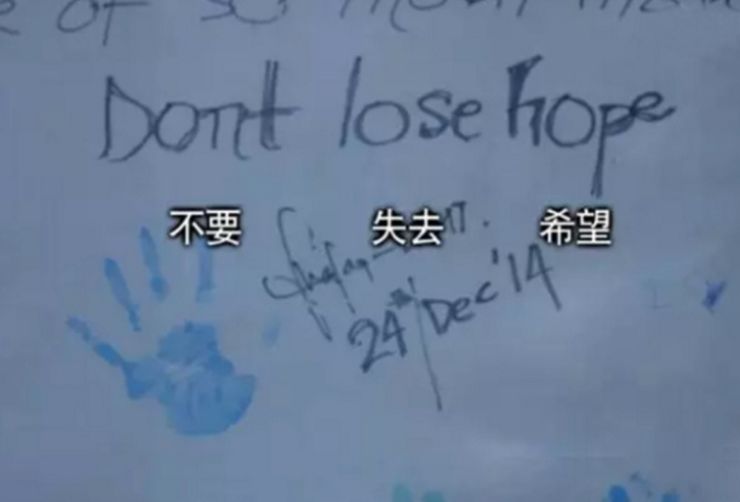 of so
Dont lose hope
不要 失去 希望
24th Dec '14